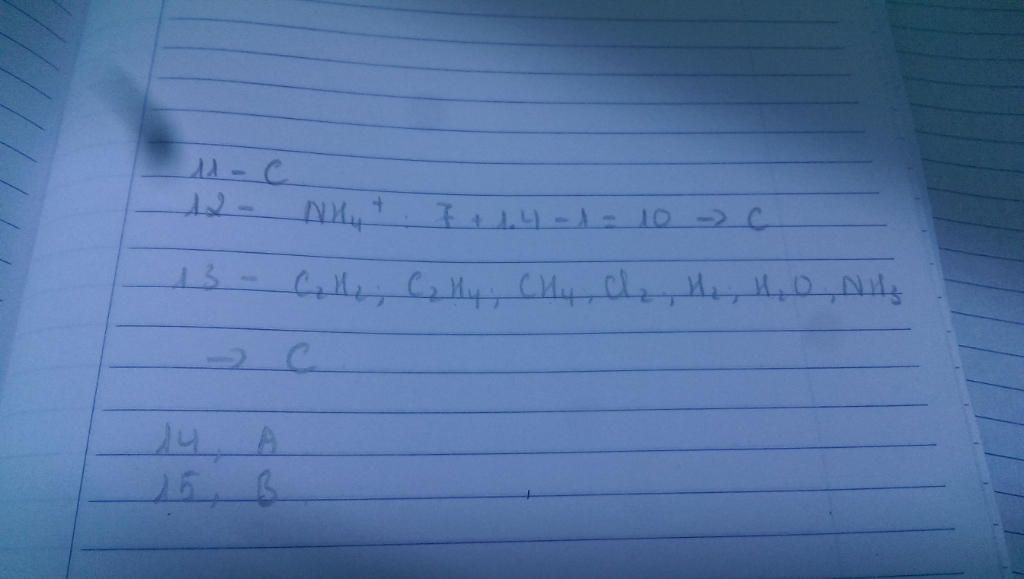 11 - C
12 - NH₄⁺ : 7 + 1.4 - 1 = 10 → C
13 - C₂H₂; C₂H₄; CH₄, Cl₂, H₂, H₂O, NH₃
→ C
14, A
15, B